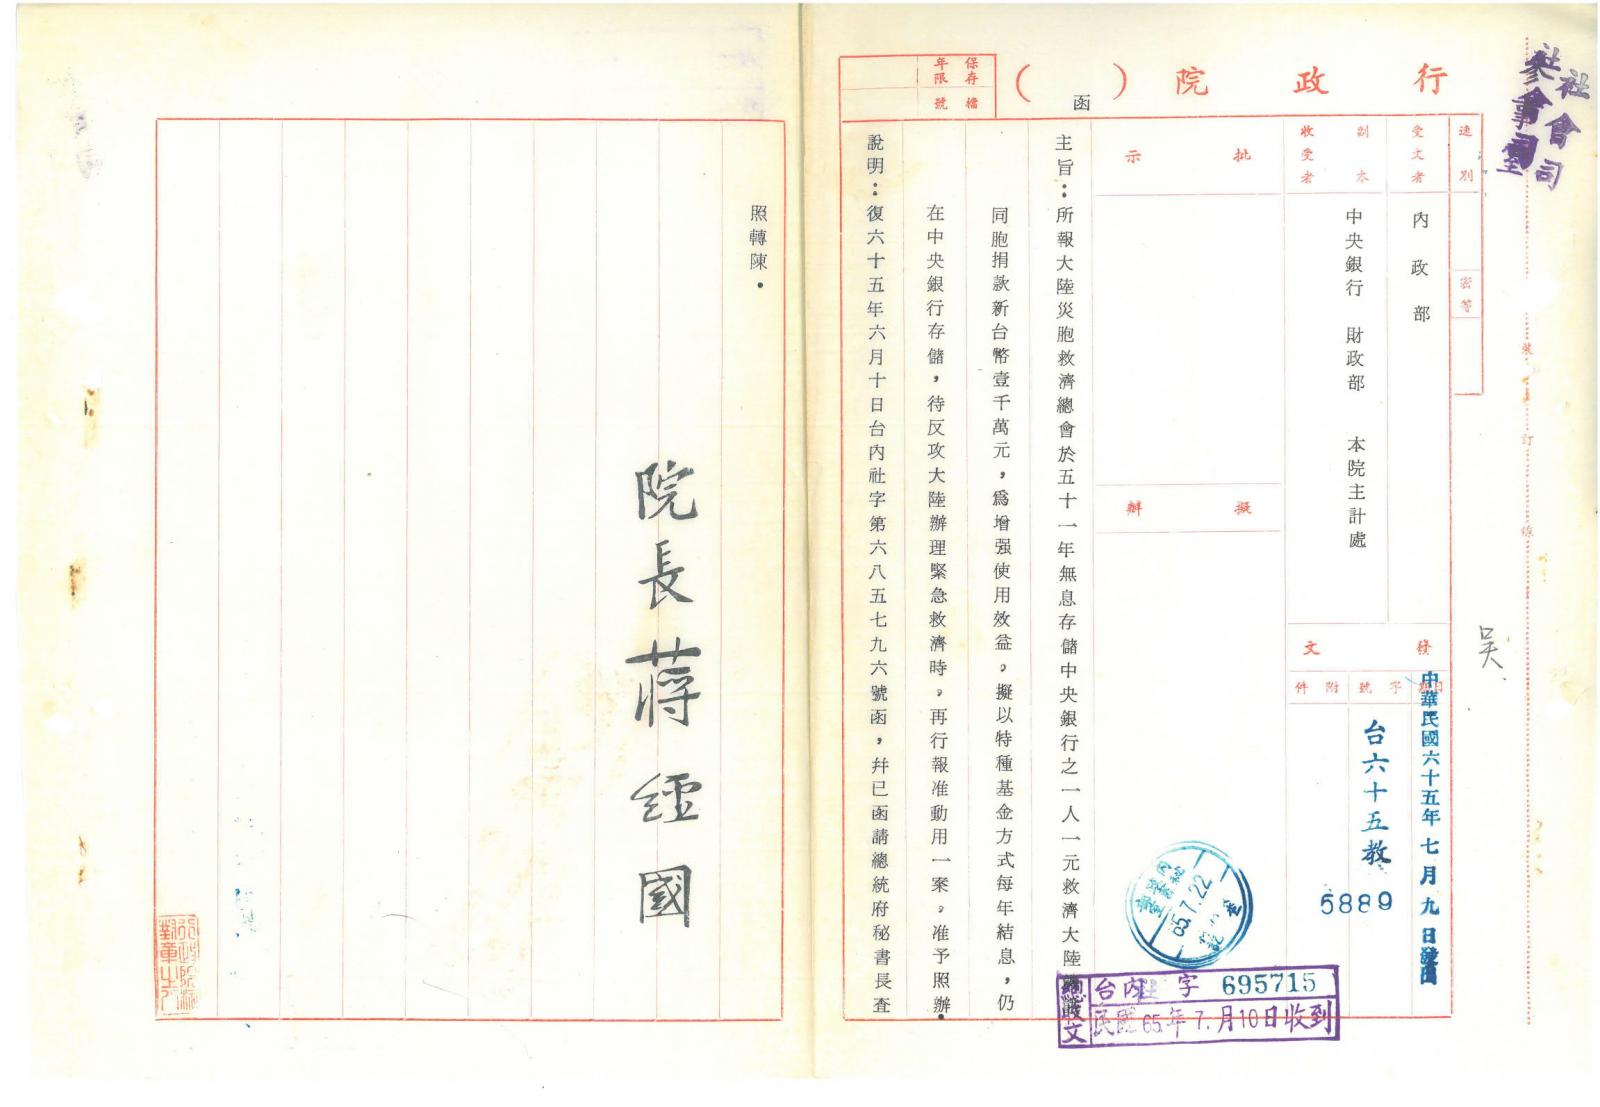 社會司
參事室
行政院(　)函
保存年限
檔號
速別
密等
受文者
內政部
副本收受者
中央銀行　財政部　本院主計處
發文
日期
字號
附件
中華民國六十五年七月九日發出
台六十五教
5889
批示
擬辦
主旨：所報大陸災胞救濟總會於五十一年無息存儲中央銀行之一人一元救濟大陸
同胞捐款新台幣壹千萬元，為增强使用效益，擬以特種基金方式每年結息，仍
在中央銀行存儲，待反攻大陸辦理緊急救濟時，再行報准動用一案，准予照辦。
說明：復六十五年六月十日台內社字第六八五七九六號函，幷已函請總統府秘書長查
照轉陳。
院長蔣經國
65.7.22
總收文
台內社字 695715
民國65年7.月10日收到
裝
訂
線
吳